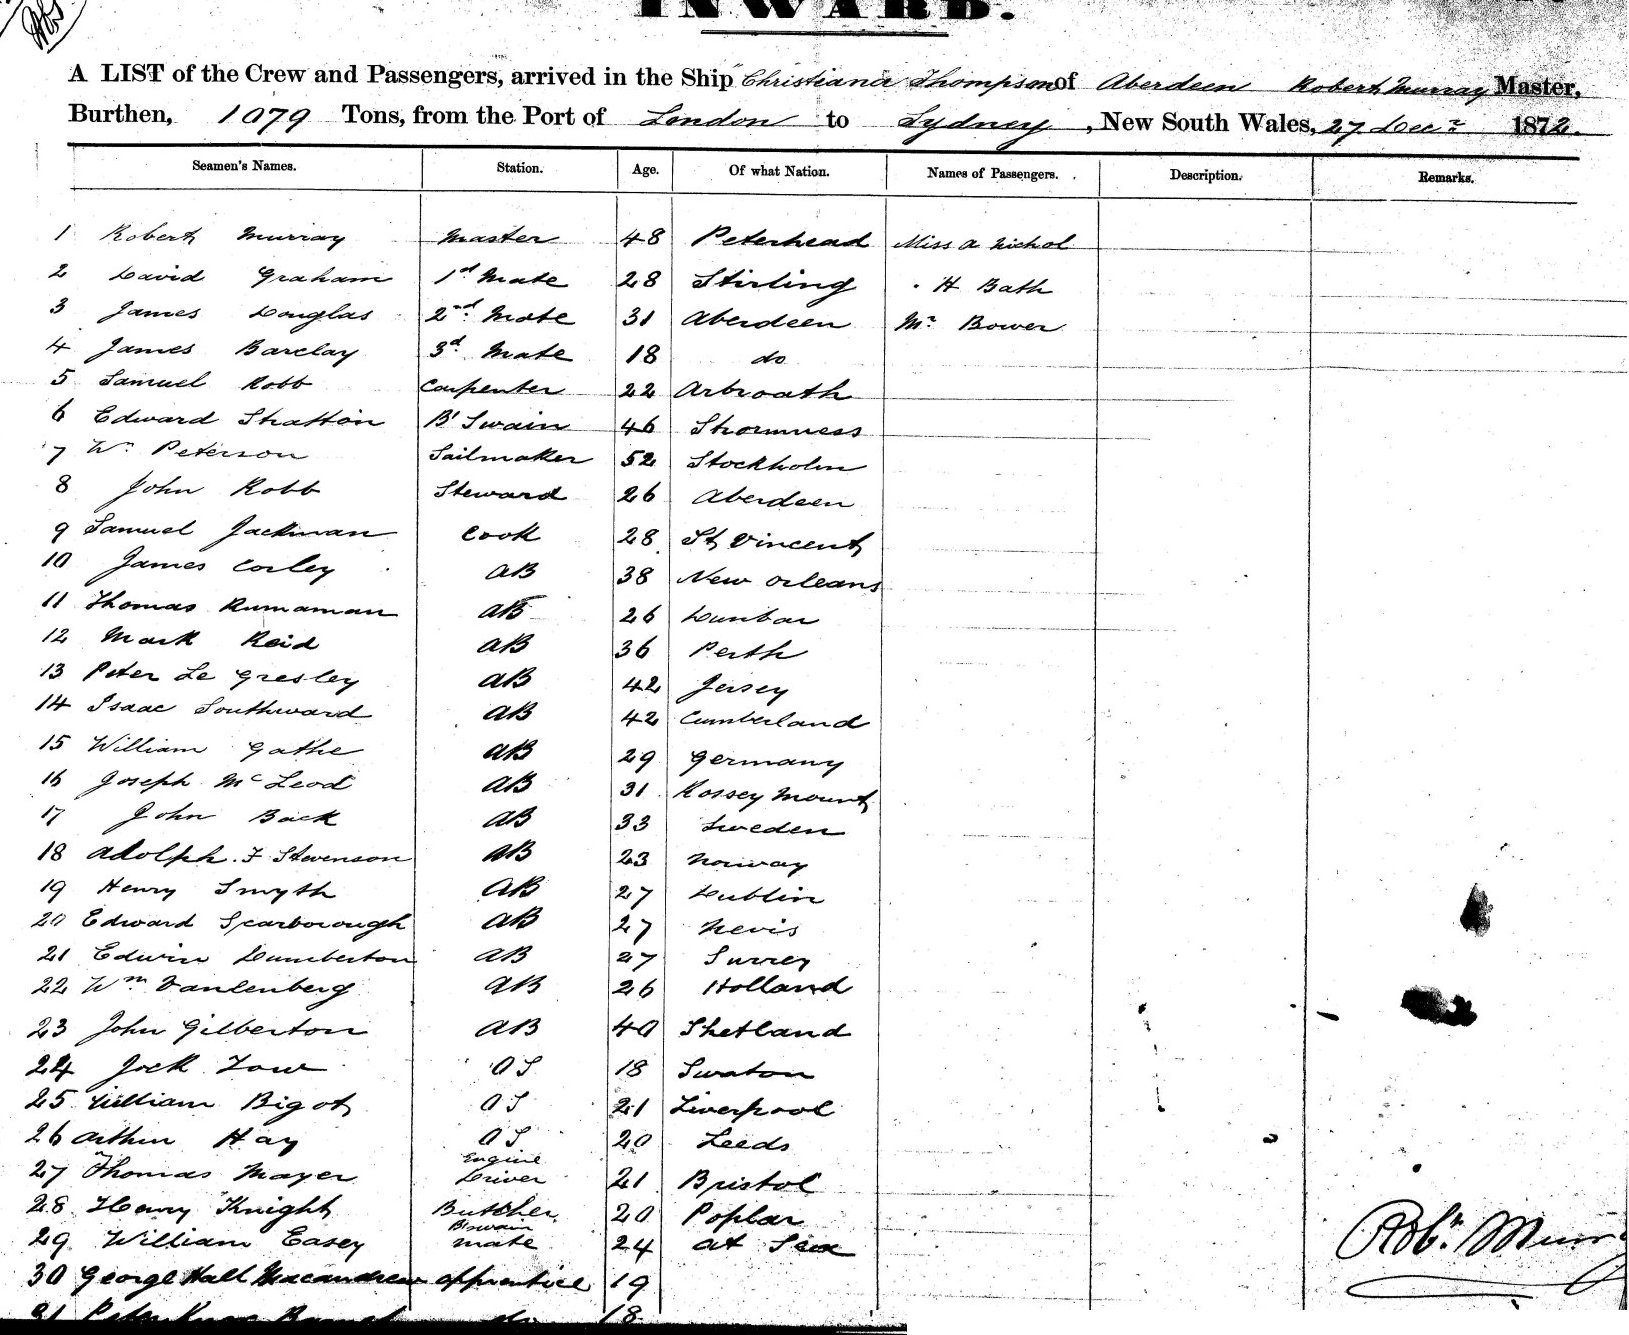 INWARD.
A LIST of the Crew and Passengers, arrived in the Ship Christiana Thompson of Aberdeen Robert Murray Master,
Burthen, 1079 Tons, from the Port of London to Sydney, New South Wales, 27 Decr 1872.
Seamen's Names. Station. Age. Of what Nation. Names of Passengers. Description. Remarks.
1 Robert Murray Master 48 Peterhead Miss A Nichol
2 David Graham 1st Mate 28 Stirling " H Bath
3 James Douglas 2nd Mate 31 Aberdeen Mr Bower
4 James Barclay 3d Mate 18 do
5 Samuel Robb Carpenter 22 Arbroath
6 Edward Stratton B'Swain 46 Stromness
7 Wm Peterson Sailmaker 52 Stockholm
8 John Robb Steward 26 Aberdeen
9 Samuel Jackman Cook 28 St Vincent
10 James Corley AB 38 New Orleans
11 Thomas Rumaman AB 26 Dunbar
12 Mark Reid AB 36 Perth
13 Peter Le Gresley AB 42 Jersey
14 Isaac Southward AB 42 Cumberland
15 William Gathe AB 29 Germany
16 Joseph McLeod AB 31 Rossey Mount
17 John Back AB 33 Sweden
18 Adolph. F Stevenson AB 23 Norway
19 Henry Smyth AB 27 Dublin
20 Edward Scarborough AB 27 Nevis
21 Edwin Dumberton AB 27 Surrey
22 Wm Vanlenberg AB 26 Holland
23 John Gilberton AB 40 Shetland
24 Jock Tow OS 18 Swaton
25 William Bigot OS 21 Liverpool
26 Arthur Hay OS 20 Leeds
27 Thomas Mayer Engine Driver 21 Bristol
28 Henry Knight Butcher 20 Poplar
29 William Easey B'swain mate 24 at Sea
30 George Hall Macandrew apprentice 19
31 Peter do 18
Robt. Murray